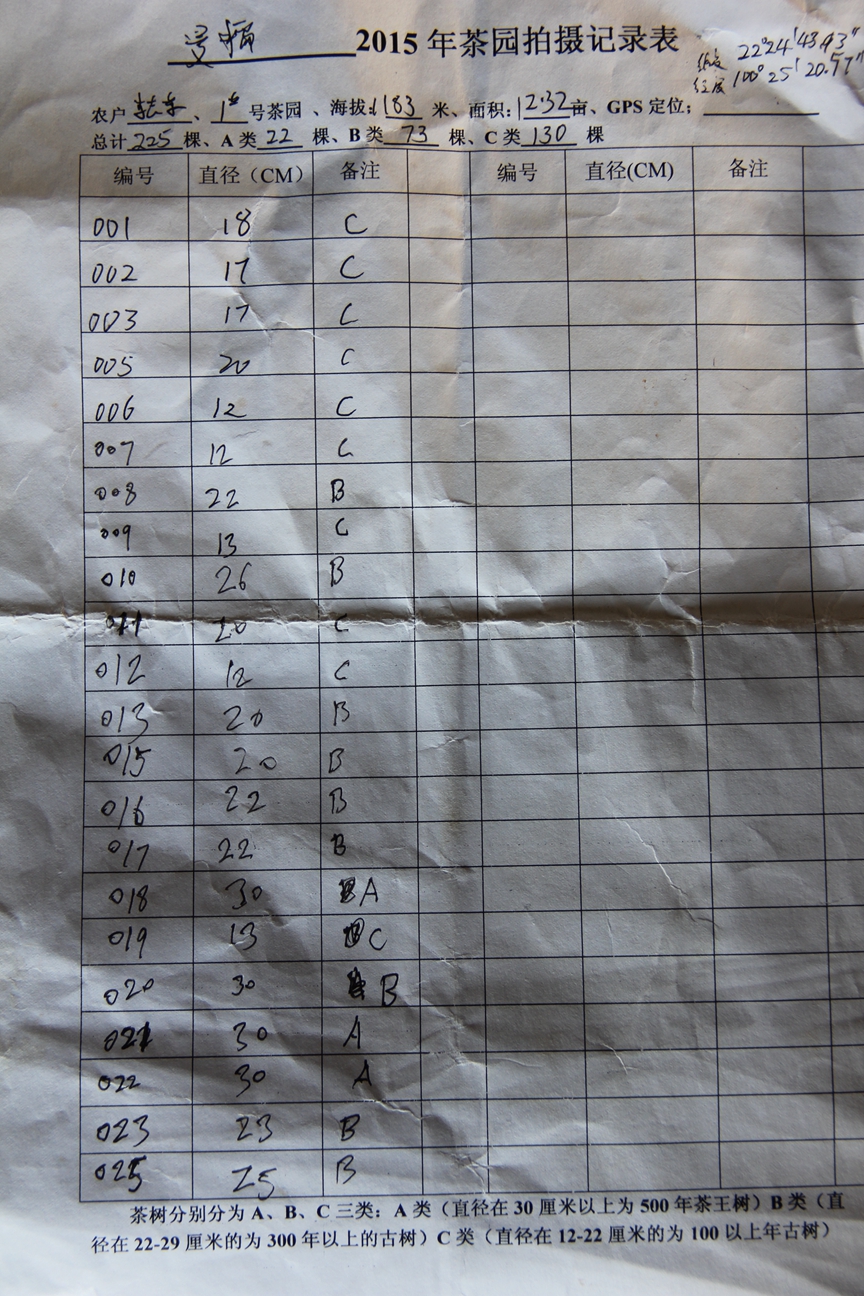 2015年茶园拍摄记录表
纬度 22°24′43.93″
经度 100°25′20.57″
农户、1# 号茶园、海拔:1183 米、面积:12.32亩、GPS 定位:
总计 225 棵、A 类 22 棵、B 类 73 棵、C 类 130 棵
编号 直径（CM） 备注 编号 直径(CM) 备注
001 18 C
002 17 C
003 17 C
005 20 C
006 12 C
007 12 C
008 22 B
009 13 C
010 26 B
011 20 C
012 12 C
013 20 B
015 20 B
016 22 B
017 22 B
018 30 A
019 13 C
020 30 B
021 30 A
022 30 A
023 23 B
025 25 B
茶树分别分为 A、B、C 三类：A 类（直径在 30 厘米以上为 500 年茶王树）B 类（直
径在 22-29 厘米的为 300 年以上的古树）C 类（直径在 12-22 厘米的为 100 以上年古树）